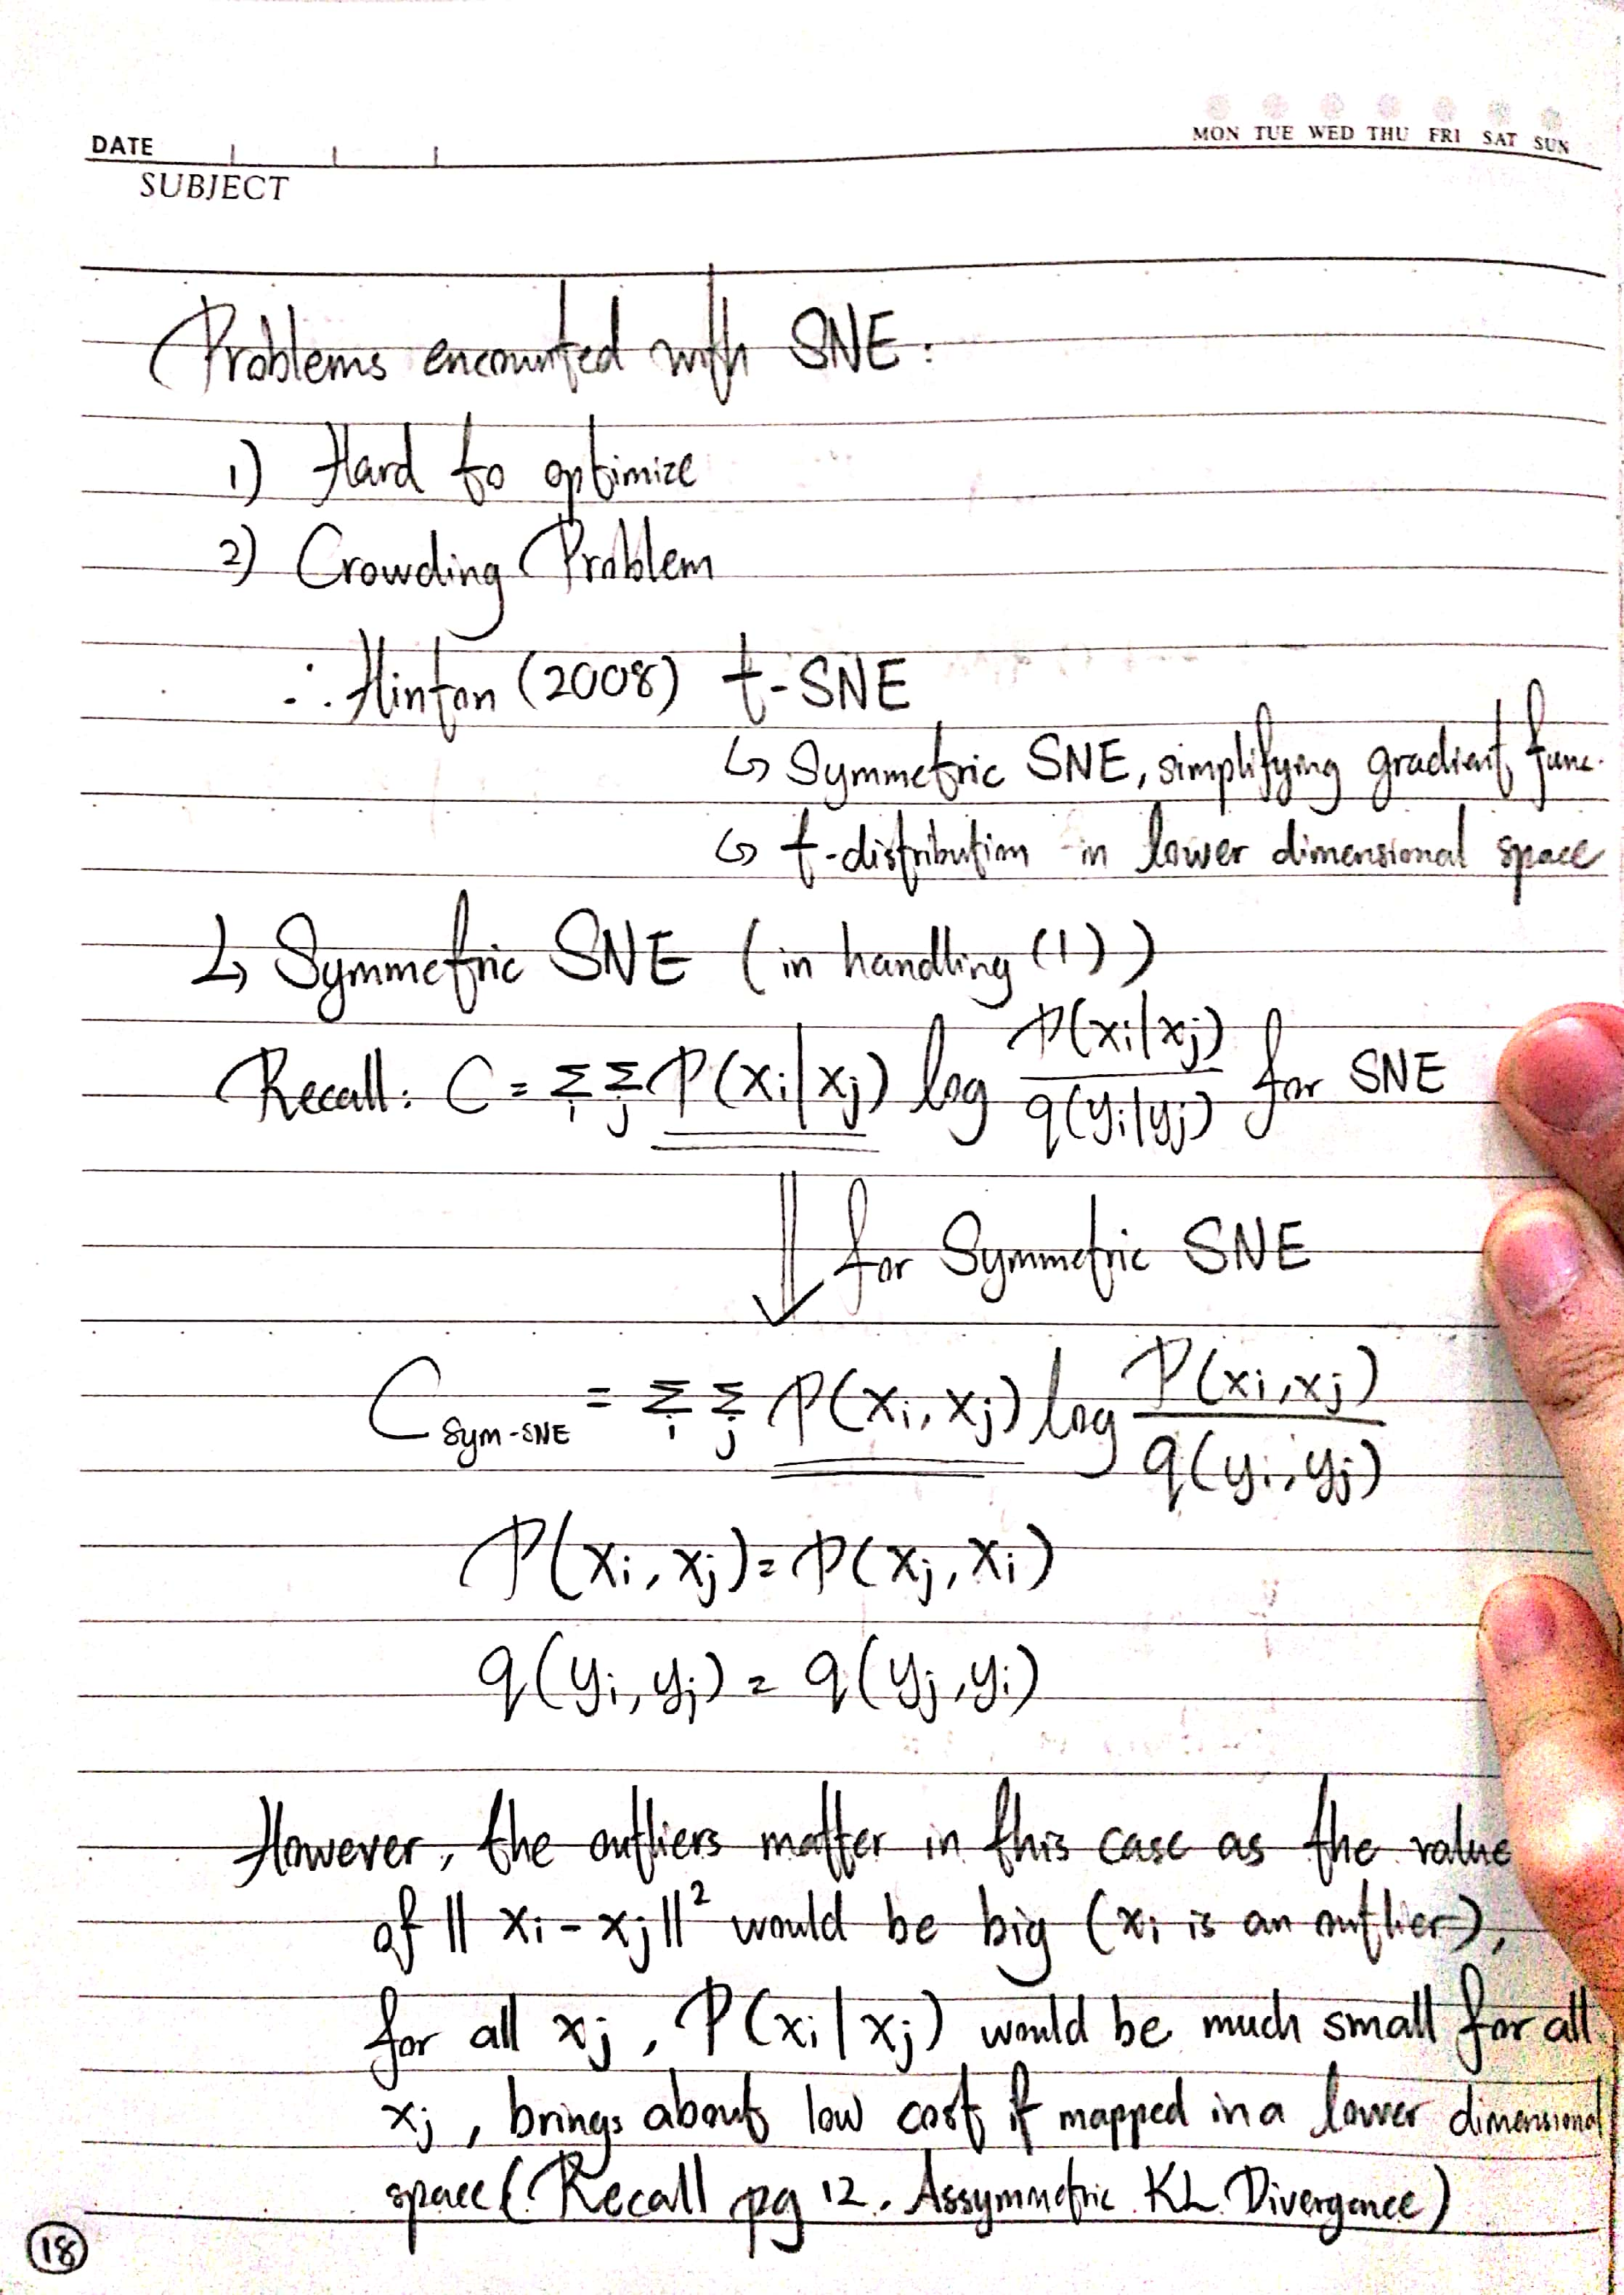 MON TUE WED THU FRI SAT SUN
DATE
SUBJECT
Problems encounted with SNE:
1) Hard to optimize
2) Crowding Problem
∴ Hinton (2008) t-SNE
↳ Symmetric SNE, simplifying gradient func.
↳ t-distribution in lower dimensional space
↳ Symmetric SNE (in handling (1))
Recall: C = Σ_i Σ_j P(xi|xj) log P(xi|xj) / q(yi|yj) for SNE
⇓ for Symmetric SNE
C_sym-SNE = Σ_i Σ_j P(xi, xj) log P(xi, xj) / q(yi, yj)
P(xi, xj) = P(xj, xi)
q(yi, yj) = q(yj, yi)
However, the outliers matter in this case as the value
of || xi - xj ||² would be big (xi is an outlier),
for all xj, P(xi | xj) would be much small for all
xj, brings about low cost if mapped in a lower dimensional
space (Recall pg 12. Assymmetric KL Divergence)
18